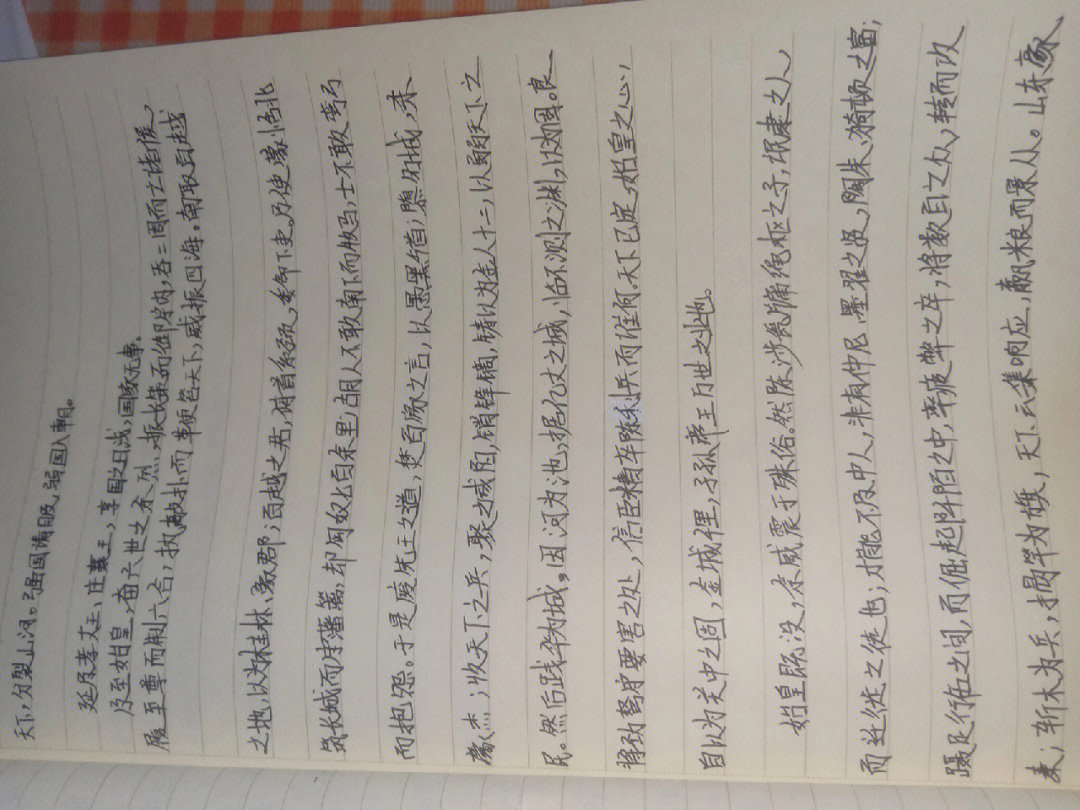 天下，分裂山河。强国请服，弱国入朝。
延及孝文王、庄襄王，享国之日浅，国家无事。
及至始皇，奋六世之余烈，振长策而御宇内，吞二周而亡诸侯，
履至尊而制六合，执敲扑而鞭笞天下，威振四海。南取百越
之地，以为桂林、象郡；百越之君，俯首系颈，委命下吏。乃使蒙恬北
筑长城而守藩篱，却匈奴七百余里；胡人不敢南下而牧马，士不敢弯弓
而抱怨。于是废先王之道，焚百家之言，以愚黔首；隳名城，杀
豪杰；收天下之兵，聚之咸阳，销锋镝，铸以为金人十二，以弱天下之
民。然后践华为城，因河为池，据亿丈之城，临不测之渊，以为固。良
将劲弩守要害之处，信臣精卒陈利兵而谁何。天下已定，始皇之心，
自以为关中之固，金城千里，子孙帝王万世之业也。
始皇既没，余威震于殊俗。然陈涉瓮牖绳枢之子，氓隶之人，
而迁徙之徒也；才能不及中人，非有仲尼、墨翟之贤，陶朱、猗顿之富；
蹑足行伍之间，而倔起阡陌之中，率疲弊之卒，将数百之众，转而攻
秦；斩木为兵，揭竿为旗，天下云集响应，赢粮而景从。山东豪